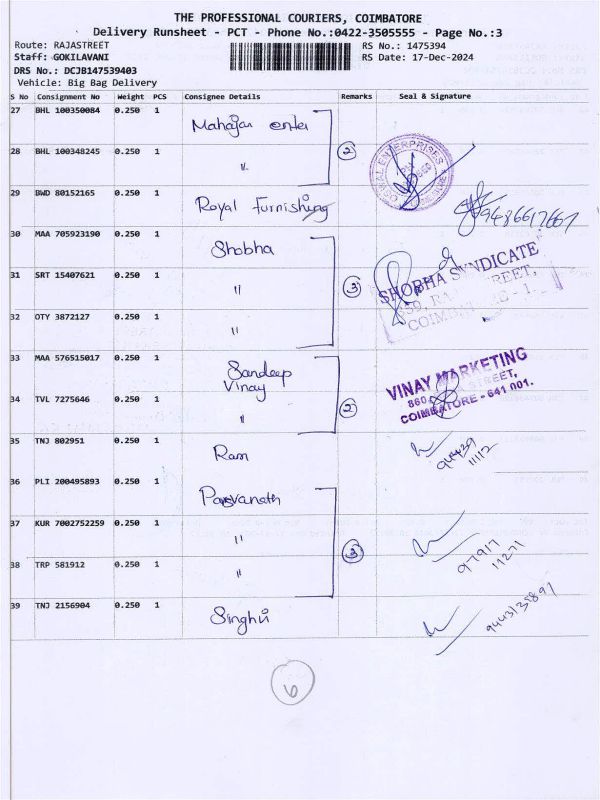 THE PROFESSIONAL COURIERS, COIMBATORE
Delivery Runsheet - PCT - Phone No.:0422-3505555 - Page No.:3
Route: RAJASTREET RS No.: 1475394
Staff: GOKILAVANI RS Date: 17-Dec-2024
DRS No.: DCJB147539403
Vehicle: Big Bag Delivery
S No Consignment No Weight PCS Consignee Details Remarks Seal & Signature
27 BHL 100350084 0.250 1 Mahajan enter
28 BHL 100348245 0.250 1 " 2 OSWAL ENTERPRISES
29 BWD 80152165 0.250 1 Royal Furnishing 9486617667
30 MAA 705923190 0.250 1 Shobha
31 SRT 15407621 0.250 1 " 3 SHOBHA SYNDICATE
32 OTY 3872127 0.250 1 "
33 MAA 576515017 0.250 1 Sandeep
Vinay VINAY MARKETING
34 TVL 7275646 0.250 1 " 2 STREET,
COIMBATORE - 641 001.
35 TNJ 802951 0.250 1 Ram 94439
11112
36 PLI 200495893 0.250 1 Parsvanath
37 KUR 7002752259 0.250 1 "
38 TRP 581912 0.250 1 " 3 97917
11271
39 TNJ 2156904 0.250 1 Singhvi
6